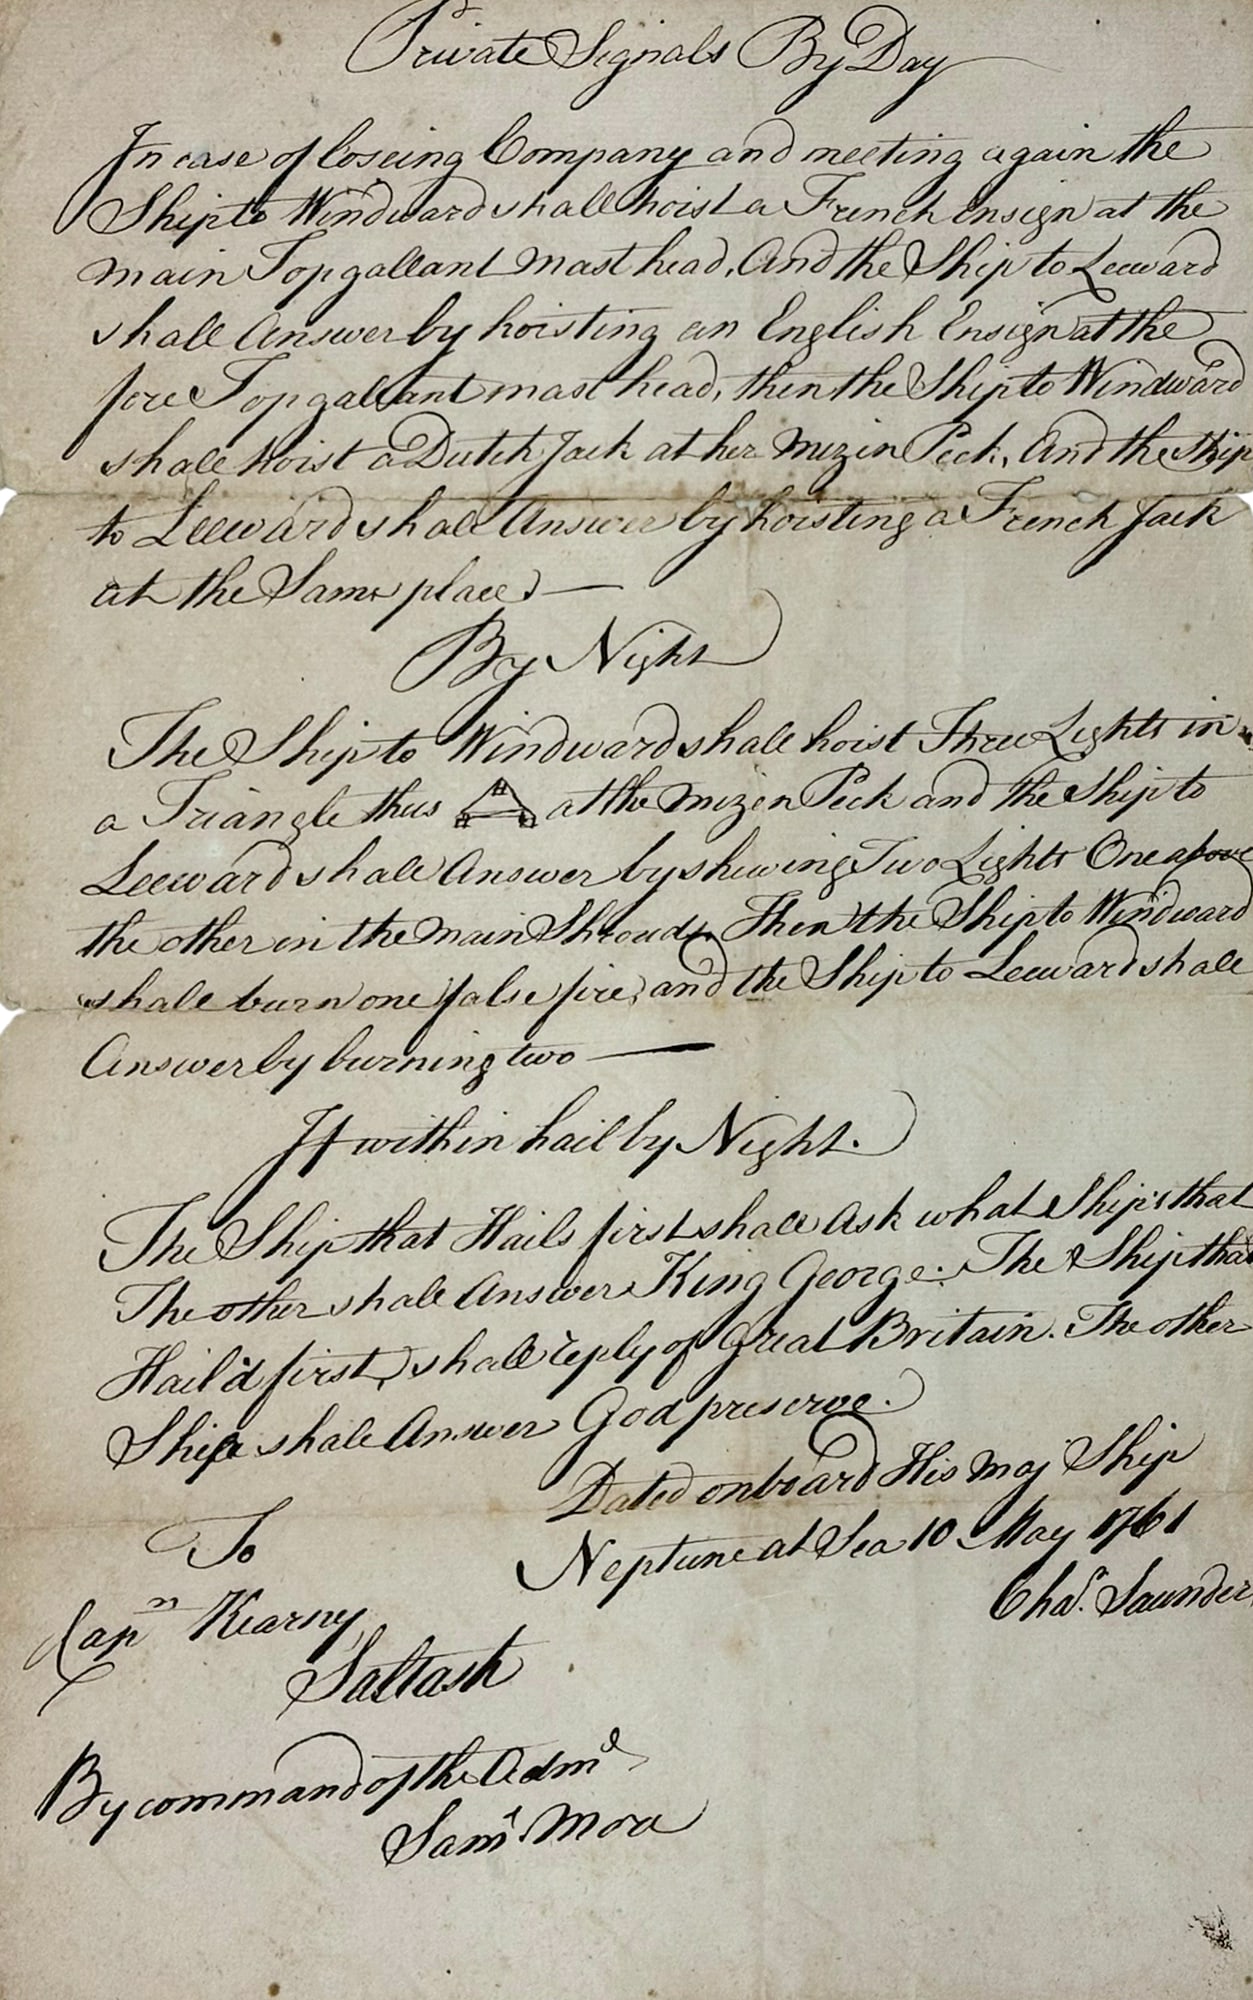 Private Signals By Day
In case of loseing Company and meeting again the
Ship to Windward shall hoist a French Ensign at the
main Topgallant mast head, And the Ship to Leeward
shall Answer by hoisting an English Ensign at the
fore Topgallant mast head, then the Ship to Windward
shall hoist a Dutch Jack at her Mizin Peek, And the Ship
to Leeward shall Answer by hoisting a French Jack
at the Same place) —
By Night
The Ship to Windward shall hoist Three Lights in
a Triangle thus at the mizen Peek and the Ship to
Leeward shall Answer by shewing Two Lights One above
the other in the main Shrouds. Then the Ship to Windward
shall burn one false fire, and the Ship to Leeward shall
Answer by burning two —
If within hail by Night.
The Ship that Hails first shall Ask what Ship's that
The other shall Answer King George. The Ship that
Hail'd first, shall reply of Great Britain. The other
Ship shall Answer God preserve.
Dated onboard His Maj Ship
Neptune at Sea 10 May 1761
Chas. Saunders
To
Capn Kearny
Saltash
By command of the Adml
Saml. Mora